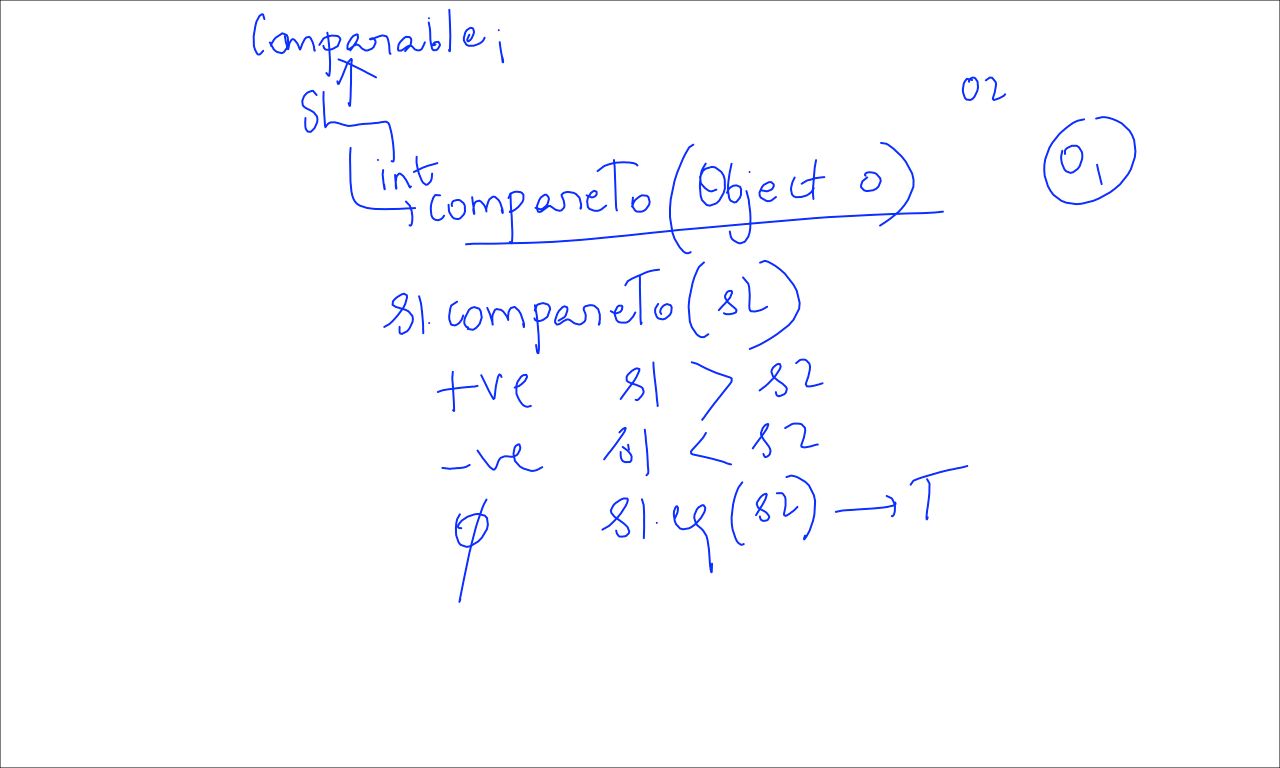 Comparable;
O2
S1
O1
int
compareTo(Object o)
s1.compareTo(s2)
+ve s1 > s2
-ve s1 < s2
φ s1.eq(s2) → T